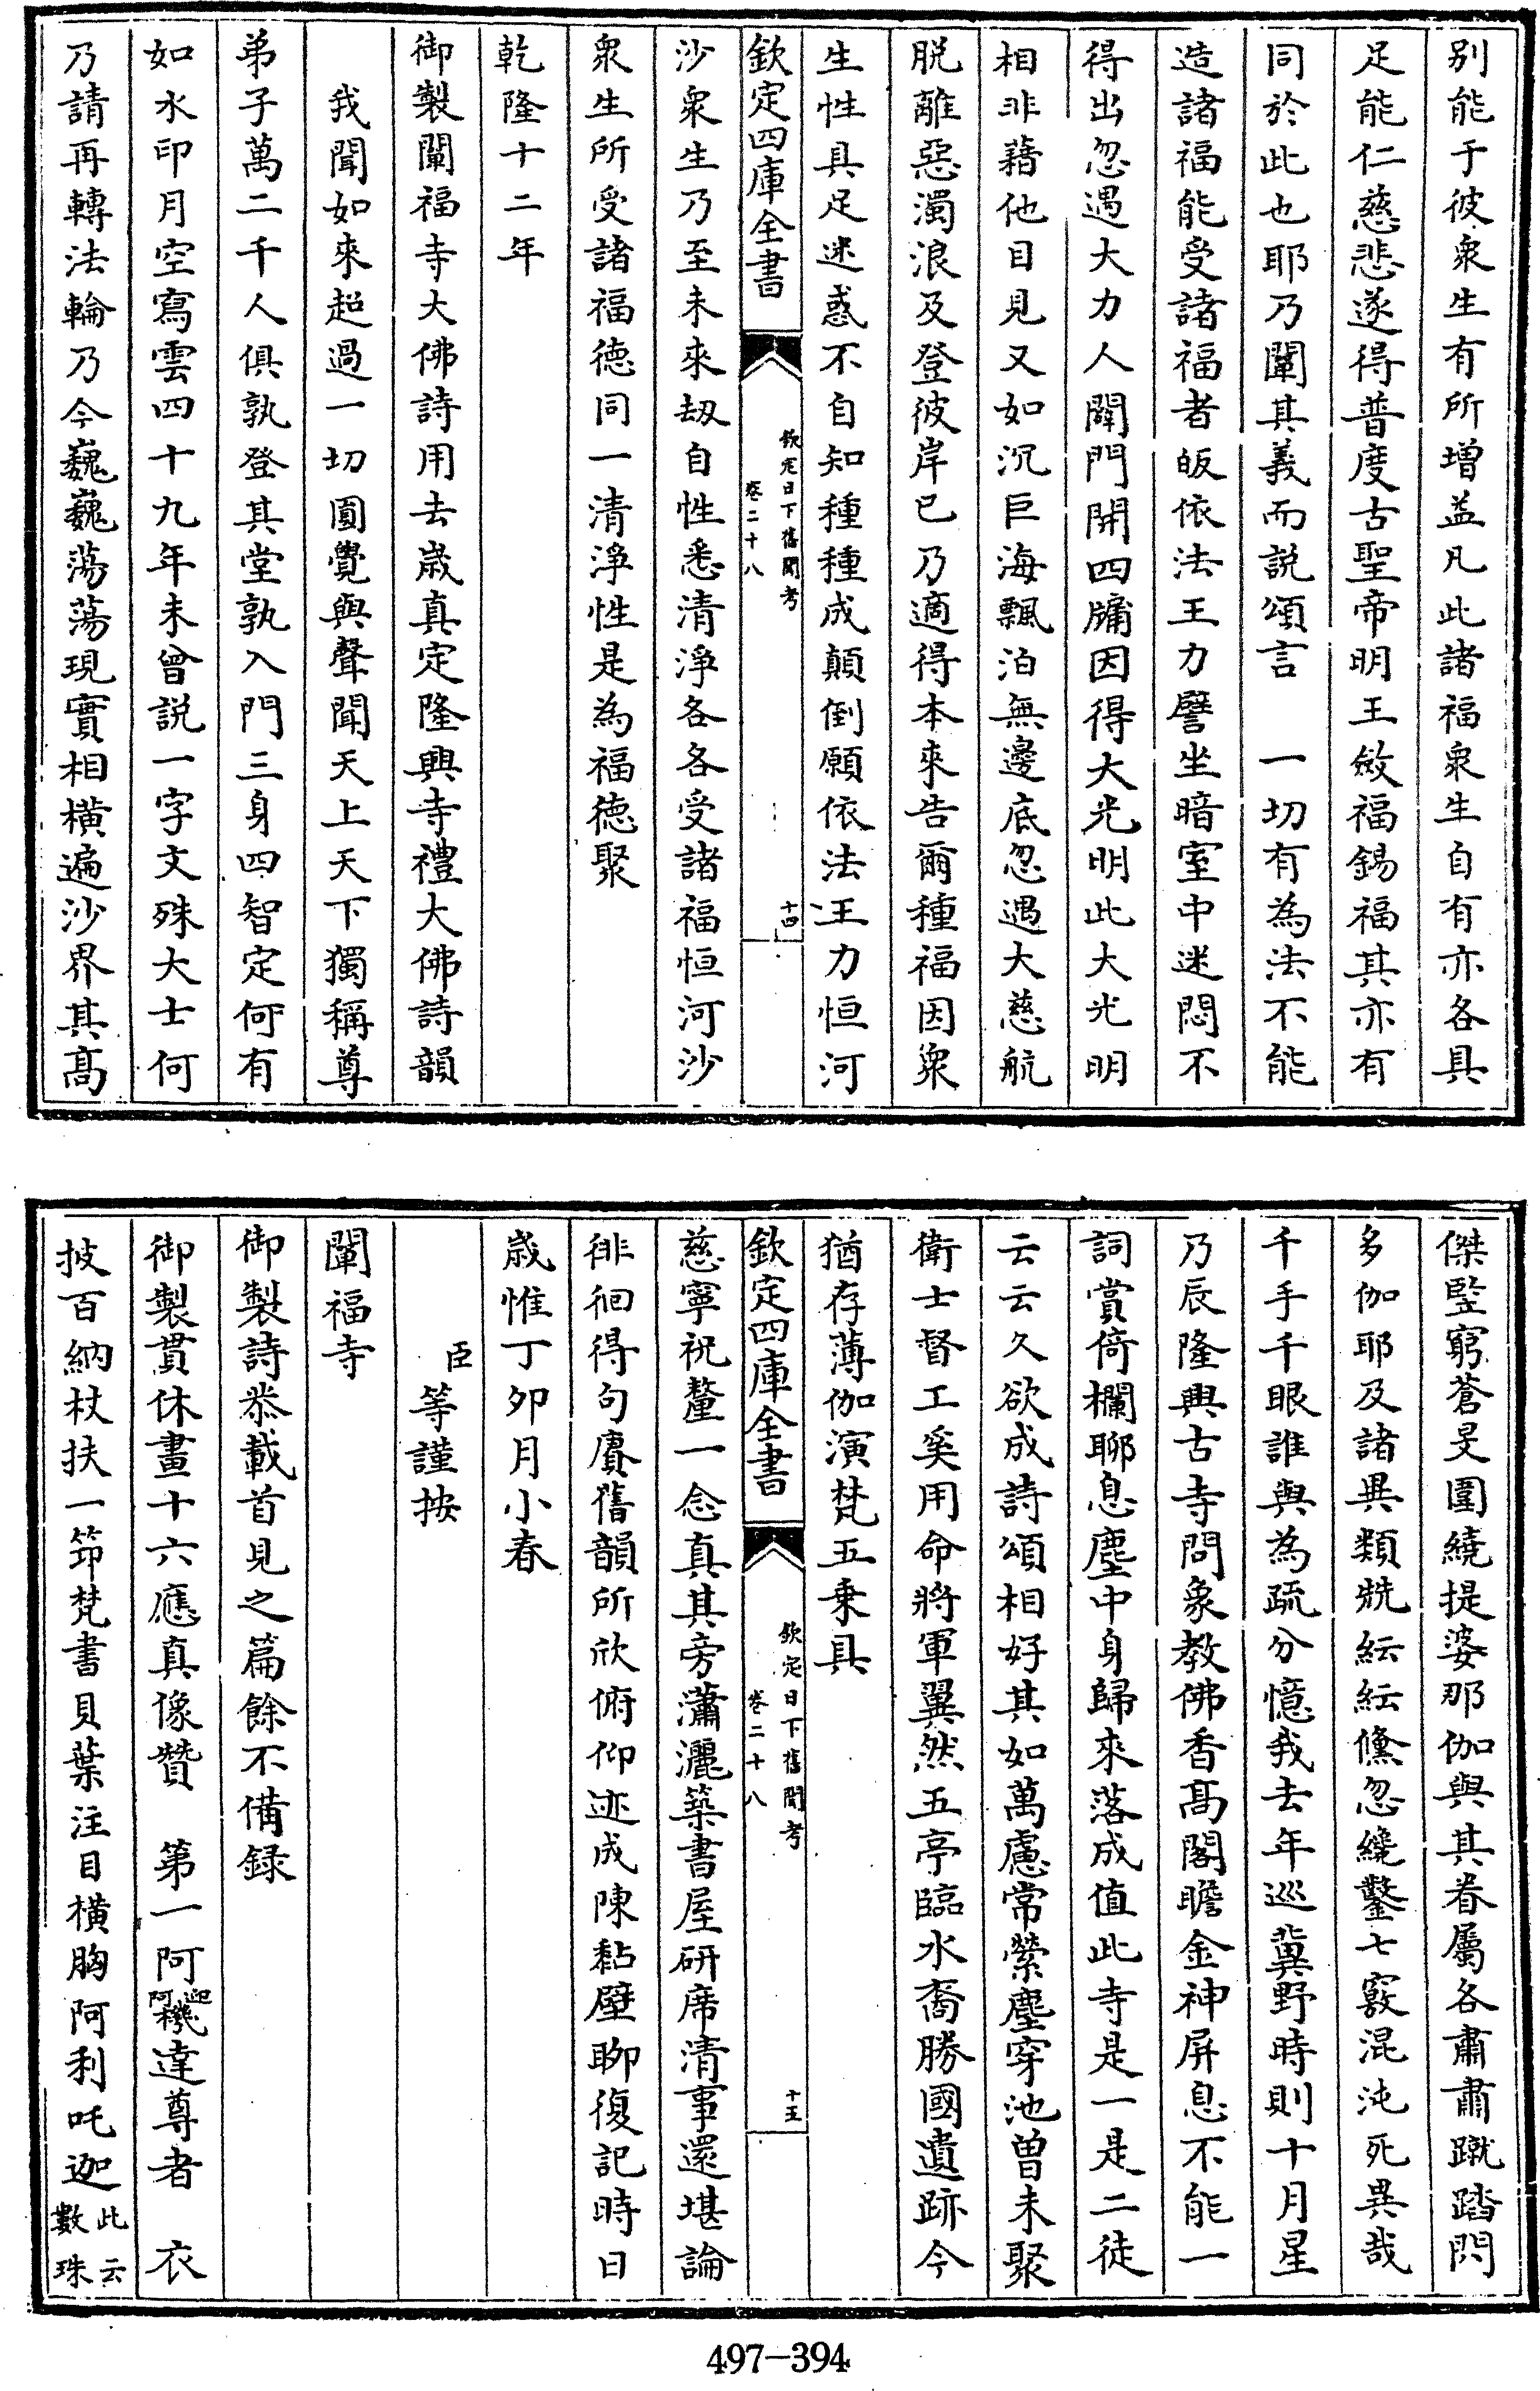 别能于彼衆生有所增益凡此諸福衆生自有亦各具
足能仁慈悲遂得普度古聖帝明王斂福錫福其亦有
同於此也耶乃闡其義而説頌言　一切有為法不能
造諸福能受諸福者皈依法王力譬坐暗室中迷悶不
得出忽遇大力人闢門開四牖因得大光明此大光明
相非藉他目見又如沉巨海飄泊無邊底忽遇大慈航
脱離惡濁浪及登彼岸已乃適得本來告爾種福因衆
生性具足迷惑不自知種種成顛倒願依法王力恒河
欽定四庫全書
欽定日下舊聞考
卷二十八
十四
沙衆生乃至未來刼自性悉清淨各各受諸福恒河沙
衆生所受諸福德同一清淨性是為福德聚
乾隆十二年
御製闡福寺大佛詩用去歳真定隆興寺禮大佛詩韻
我聞如來超過一切圓覺與聲聞天上天下獨稱尊
弟子萬二千人俱孰登其堂孰入門三身四智定何有
如水印月空寫雲四十九年未曾説一字文殊大士何
乃請再轉法輪乃今巍巍蕩蕩現實相橫遍沙界其髙
傑豎窮蒼旻圍繞提婆那伽與其眷屬各肅肅蹴踏閃
多伽耶及諸異類兟紜紜儵忽繞鑿七竅混沌死異哉
千手千眼誰與為疏分憶我去年巡冀野時則十月星
乃辰隆興古寺問象教佛香髙閣瞻金神屏息不能一
詞賞倚欄聊息塵中身歸來落成值此寺是一是二徒
云云久欲成詩頌相好其如萬慮常縈塵穿池曽未聚
衛士督工奚用命將軍翼然五亭臨水裔勝國遺跡今
猶存薄伽演梵五乗具
欽定四庫全書
欽定日下舊聞考
卷二十八
十五
慈寧祝釐一念真其旁瀟灑築書屋研席清事還堪論
徘徊得句賡舊韻所欣俯仰迹成陳黏壁聊復記時日
歳惟丁夘月小春
臣等謹按
闡福寺
御製詩恭載首見之篇餘不備録
御製貫休畫十六應真像贊　第一阿迎阿機達尊者　衣
披百納杖扶一笻梵書貝葉注目橫胸阿利吒迦此云數珠
497-394